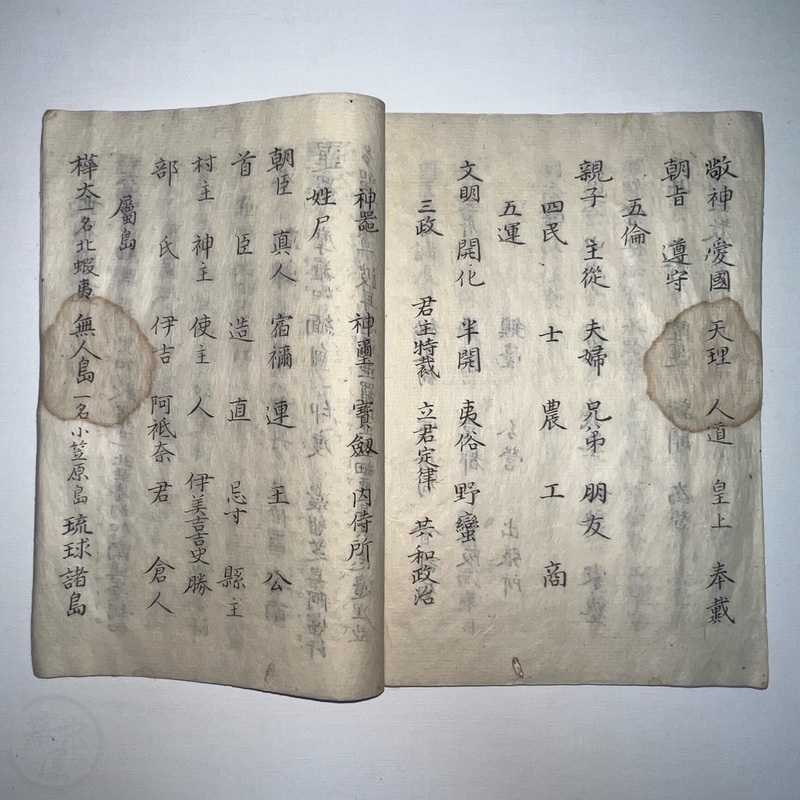 敬神 愛國 天理 人道 皇上 奉戴
朝旨 遵守
五倫
親子 主從 夫婦 兄弟 朋友
四民 士 農 工 商
五運
文明 開化 半開 夷俗 野蠻
三政 君主特裁 立君定律 共和政治
神器 神璽 寶劔 内侍所
姓尸
朝臣 真人 宿禰 連 主 公
首 臣 造 直 忌寸 縣主
村主 神主 使主 人 伊美吉 吉史 勝
部 氏 伊吉 阿祗奈君 倉人
屬島
樺太 一名北蝦夷 無人島 一名小笠原島 琉球諸島